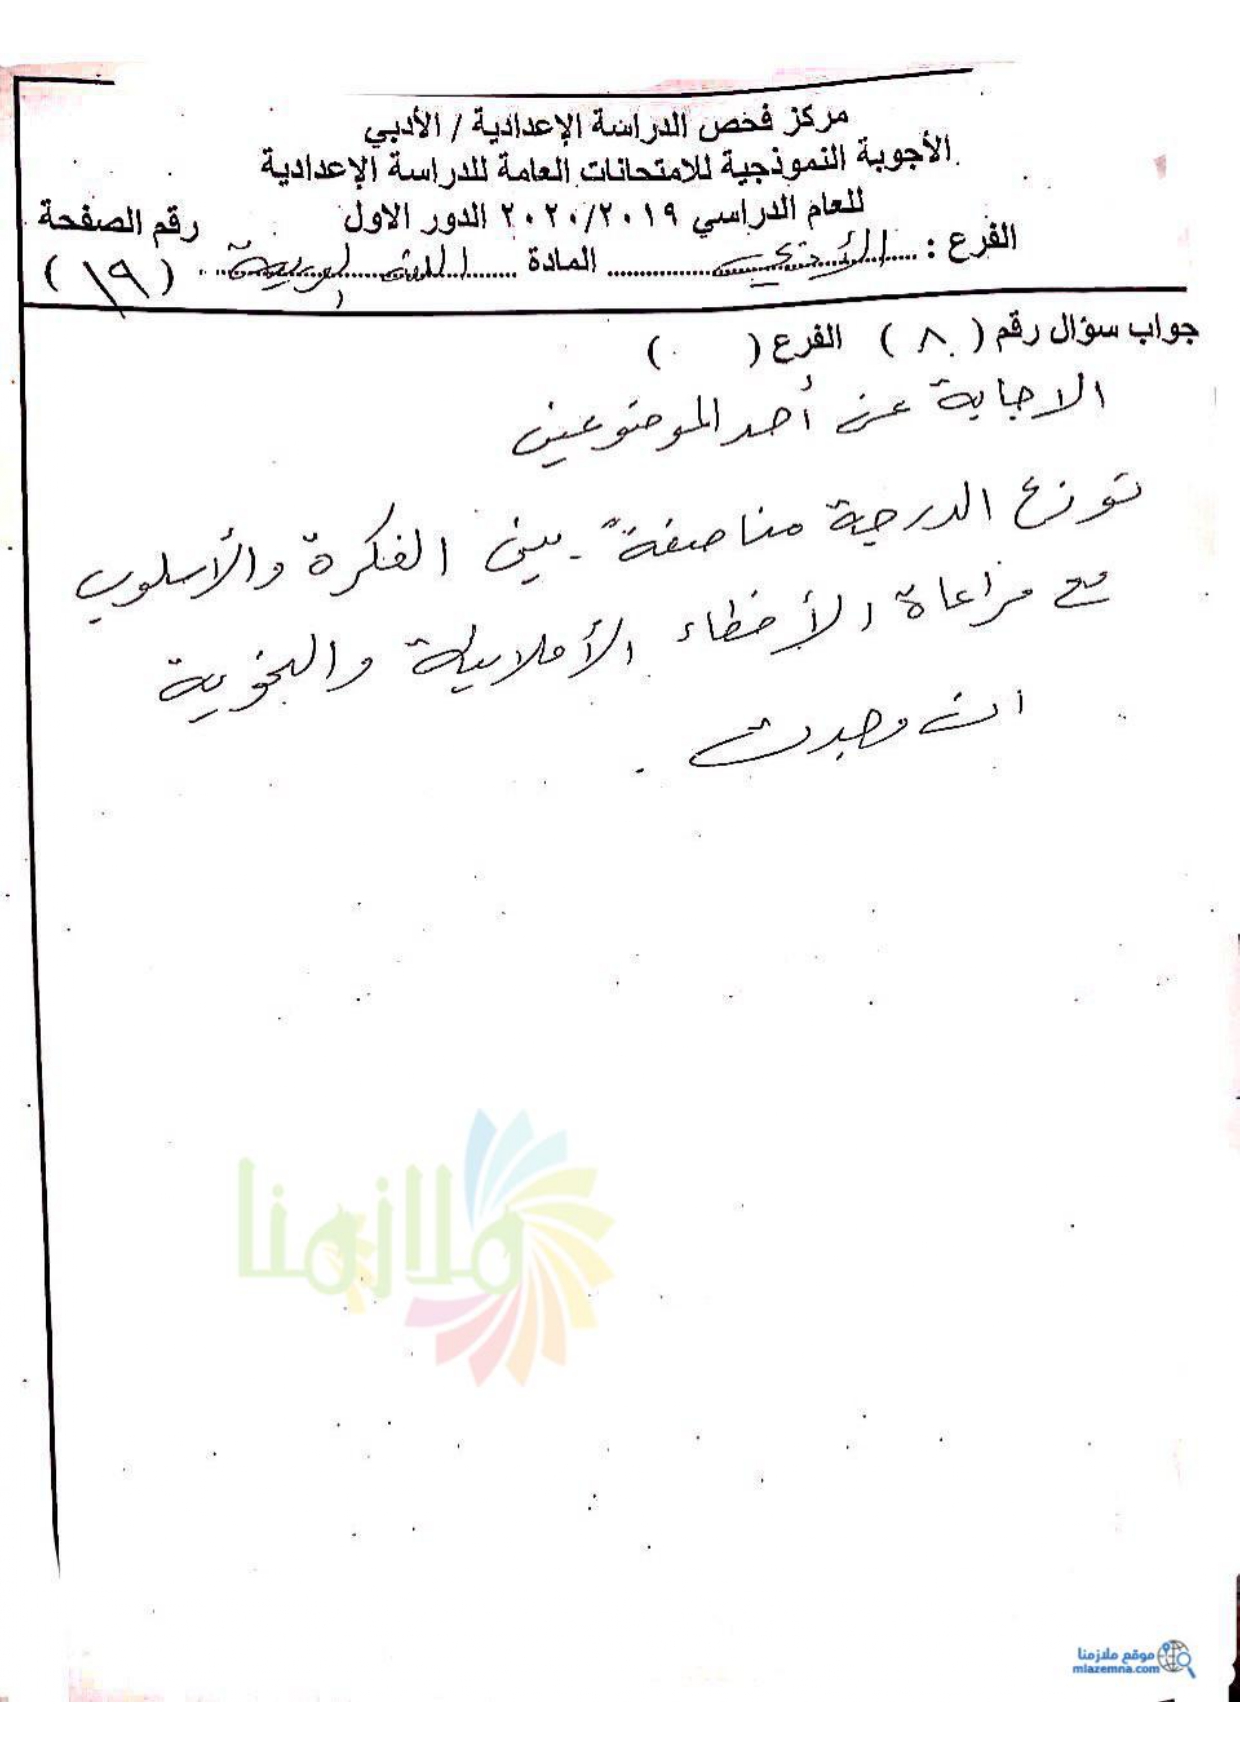 مركز فحص الدراسة الإعدادية / الأدبي
الأجوبة النموذجية للامتحانات العامة للدراسة الإعدادية
للعام الدراسي ٢٠٢٠/٢٠١٩ الدور الاول
رقم الصفحة
الفرع : الأدبي المادة اللغة العربية (١٩)
جواب سؤال رقم ( ٨ ) الفرع ( )
الاجابة عن أحد الموضوعين
توزع الدرجة مناصفةً بين الفكرة والأسلوب
مع مراعاة الأخطاء الأملائية والنحوية
ان وجدت .
ملازمنا
موقع ملازمنا
mlazemna.com